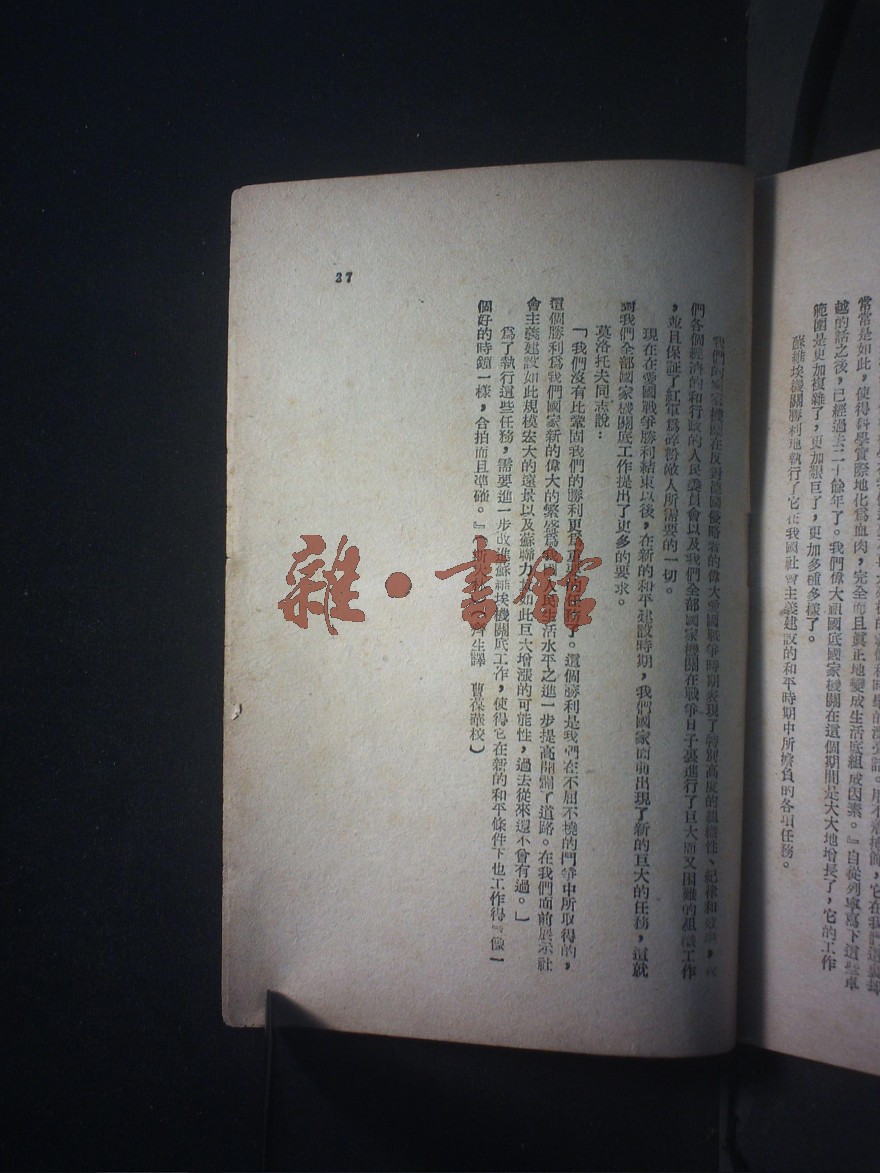 常常是如此，使得科學實際地化爲血肉，完全而且眞正地變成生活底組成因素。』自從列寧寫下這些卓
越的話之後，已經過去二十餘年了。我們偉大祖國底國家機關在這個期間是大大地增長了，它的工作
範圍是更加複雜了，更加艱巨了，更加多種多樣了。
蘇維埃機關勝利地執行了它在我國社會主義建設的和平時期中所擔負的各項任務。
我們的國家機關在反對德國侵略者的偉大愛國戰爭時期表現了特別高度的組織性、紀律和
們各個經濟的和行政的人民委員會以及我們全部國家機關在戰爭日子裏進行了巨大而又困難的組織工作
，並且保証了紅軍爲碎粉敵人所需要的一切。
現在在愛國戰爭勝利結束以後，在新的和平建設時期，我們國家面前出現了新的巨大的任務，這就
對我們全部國家機關底工作提出了更多的要求。
莫洛托夫同志說：
「我們沒有比鞏固我們的勝利更爲重要的任務了。這個勝利是我們在不屈不撓的鬥爭中所取得的，
這個勝利爲我們國家新的偉大的繁盛爲我國人民生活水平之進一步提高開闢了道路。在我們面前展示社
會主義建設如此規模宏大的遠景以及蘇聯力量如此巨大增漲的可能性，過去從來還不曾有過。」
爲了執行這些任務，需要進一步改進蘇維埃機關底工作，使得它在新的和平條件下也工作得『像一
個好的時鐘一樣，合拍而且準確。』（齊生譯　曹葆華校）
37
雜·書館